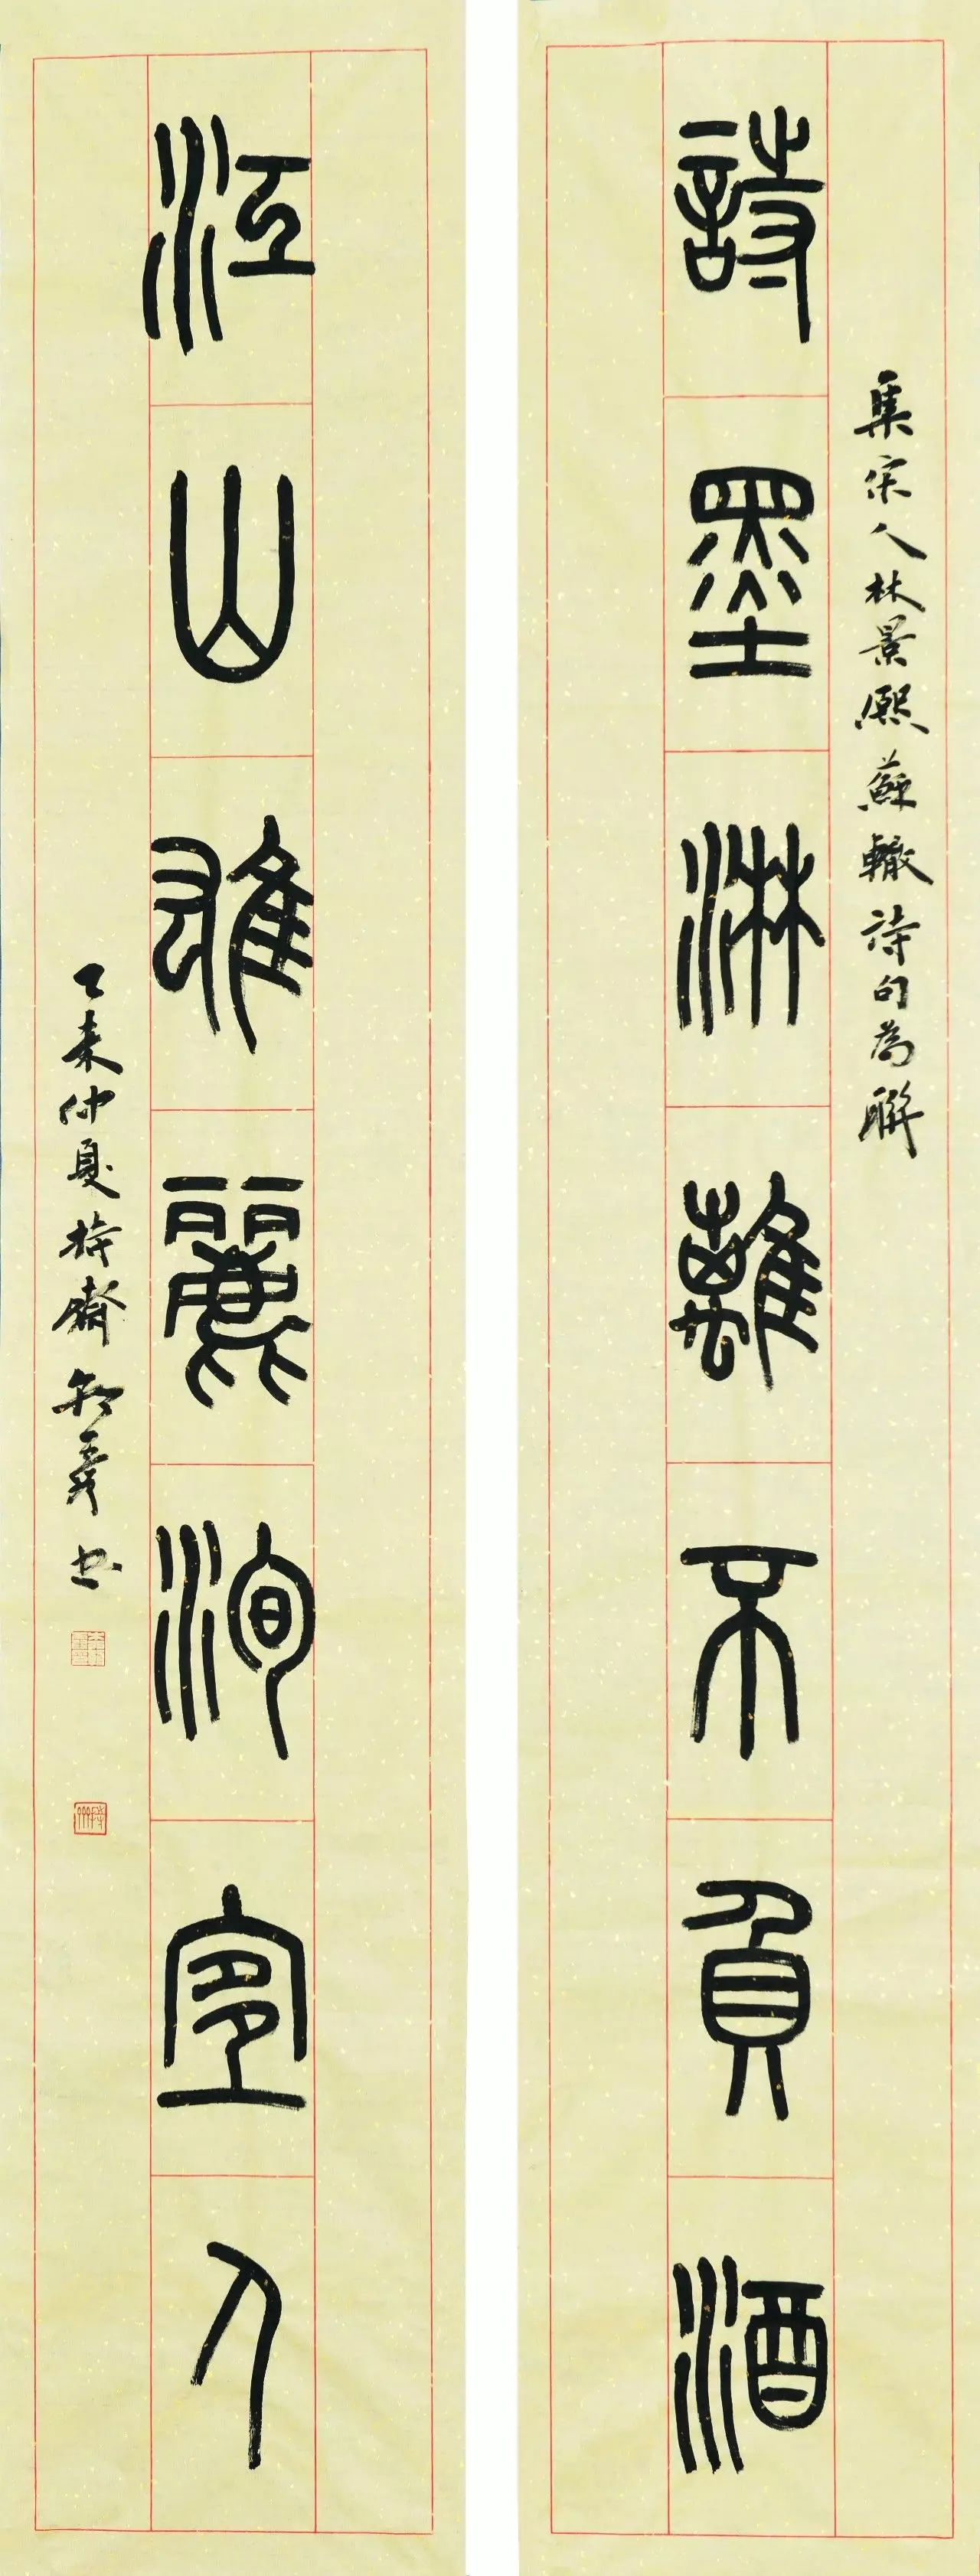 集宋人林景熙蘇轍詩句為聯
詩墨淋離不負酒
江山雄麗洵宜人
乙未仲夏持齋書